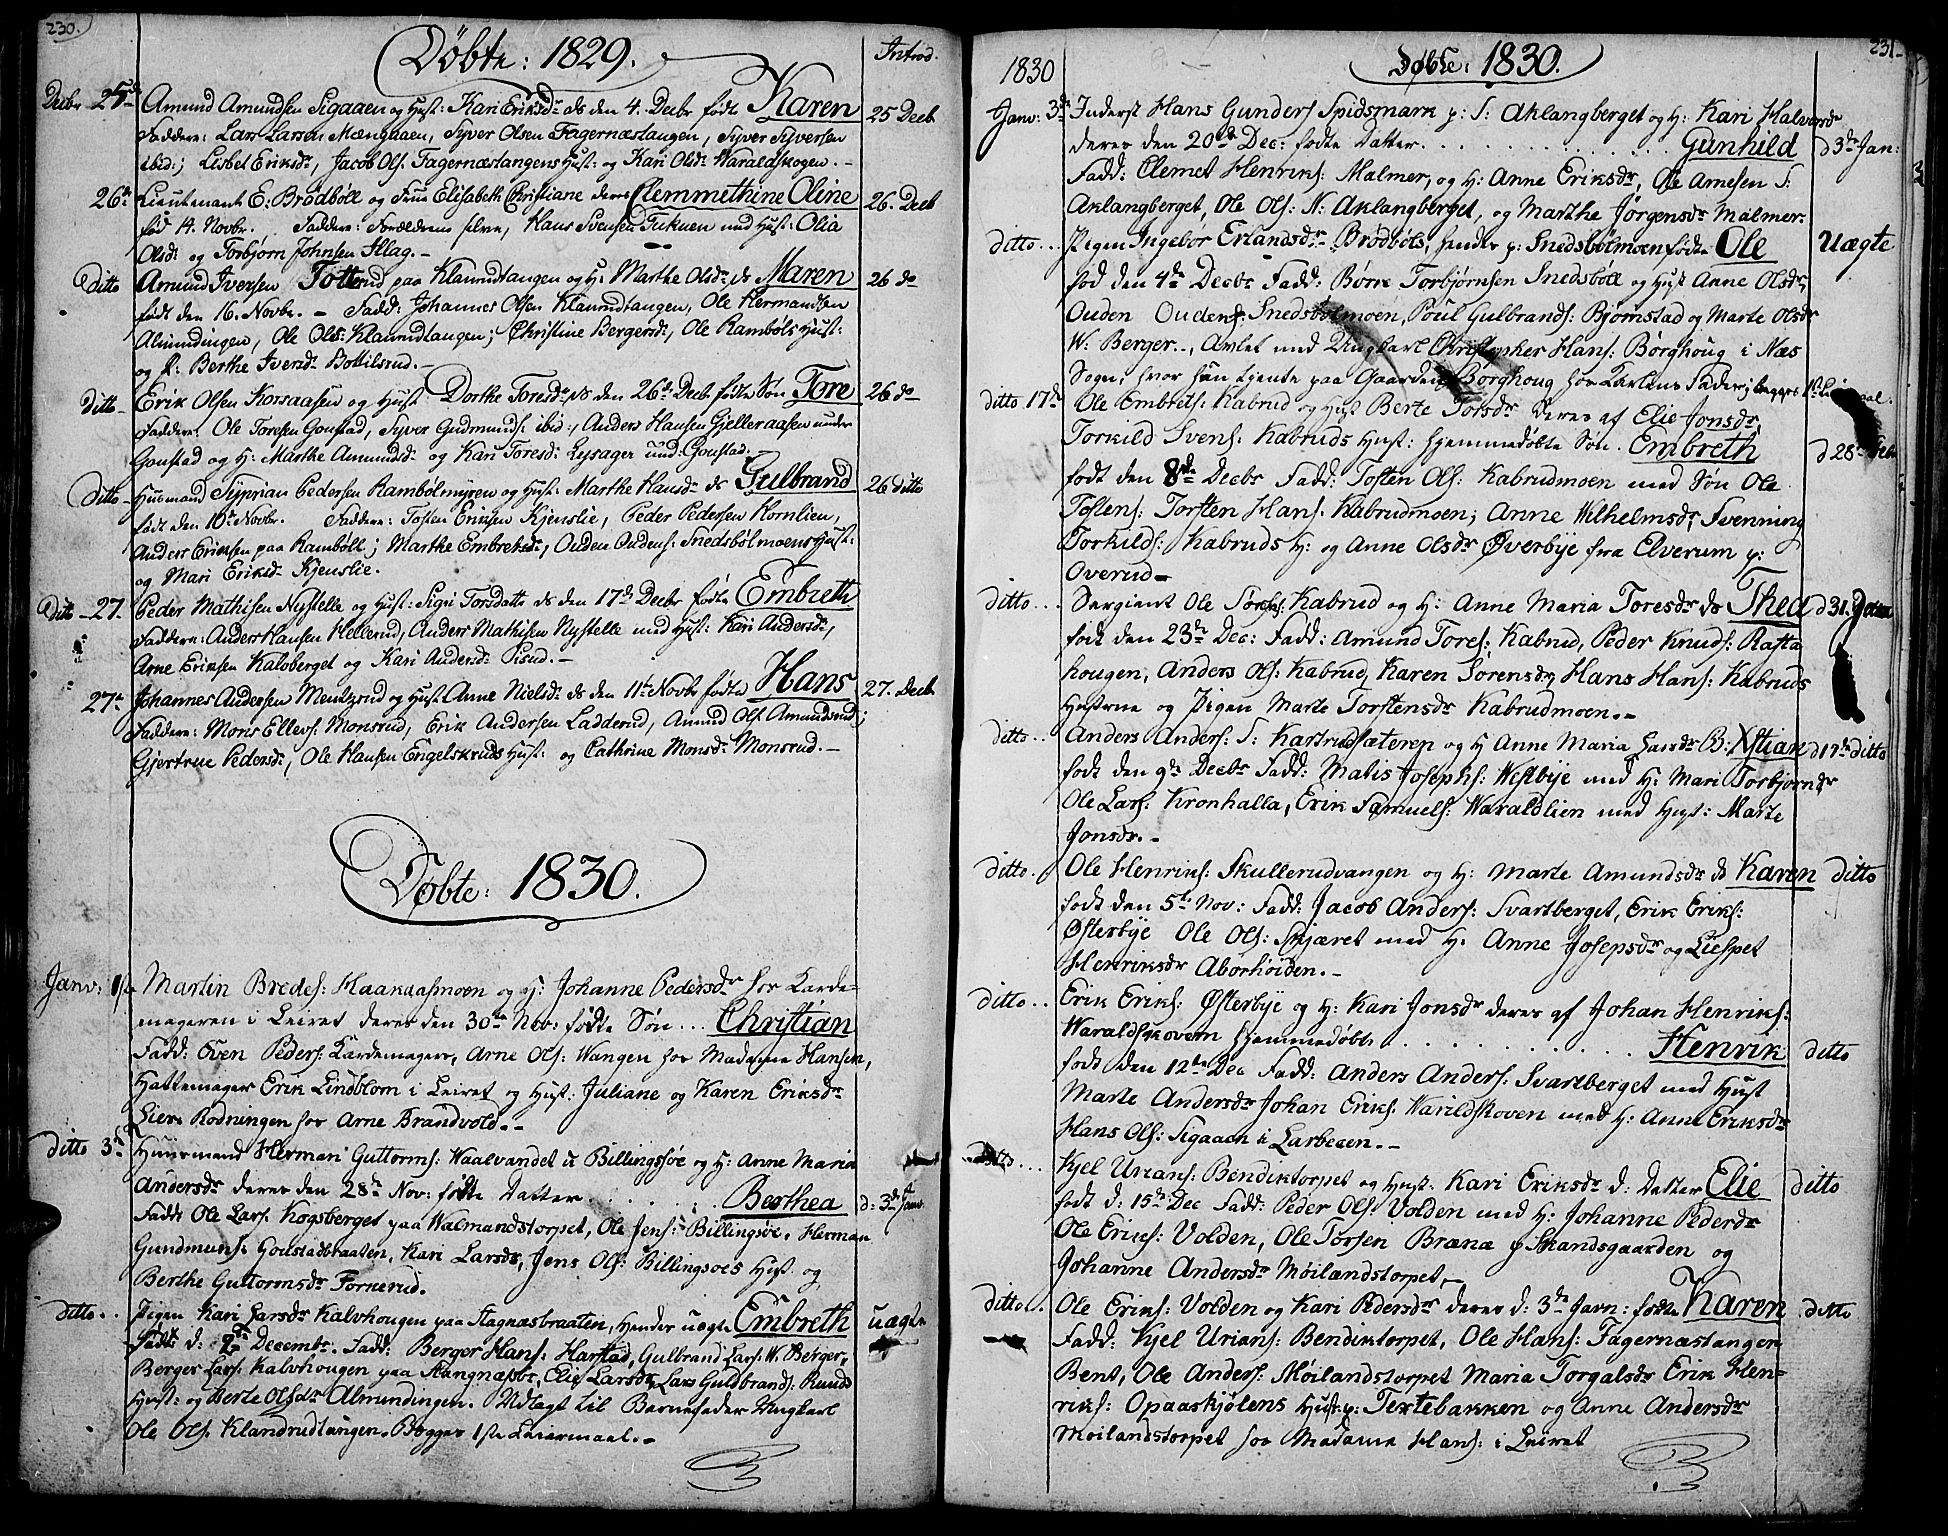 230.
Döbte: 1829.
Introd.
Decbr 25de Amund Amundsen Sigaaen og Hust: Kari Eriksdr ds den 4. Decbr födte Karen 25 Decb
Faddere: Lars Larsen Mængaaen, Syver Olsen Fagernæstangen, Syver Syversen
ibid:; Lisbet Eriksdr, Jacob Ols. Fagernæstangens Hust: og Kari Olsdr Waraldskogen. -
26de Lieutenant E: Brödböll og Frue Elisabeth Christiane deres Clemmethine Oline 26. Decb
föd 14. Novbr. Faddere: Forældrene selve, Hans Svensen Tuknen med Hust: Olia
Olsdr og Torbjörn Johnsen Illag. -
Ditto Amund Iversen Totterud paa Klanrudtangen og H: Marthe Olsdr ds Maren 26 do
födt den 16. Novbr. - Fadd: Johannes Olsen Klanrudtangen, Ole Hermandsen
Almindingen, Ole Ols: Klanrudtangen; Christine Bergersdr, Ole Ramböls Hust:
og P: Berthe Iversdr Bottilsrud. -
Ditto - Erik Olsen Korsaasen og Hust Dorthe Toresdr ds den 26de Decbr födte Sön Tore 26 do
Faddere: Ole Toresen Gonstad, Syver Gudmunds: ibid:, Anders Hansen Gjelleraasen under
Gonstad og H: Marthe Amundsdr og Kari Toresdr Lysager und: Gonstad.
Ditto - Huusmand Syprian Pedersen Rambölmyren og Hust: Marthe Hansdr ds Gulbrand 26 ditto
födt den 10de Novbr. Faddere: Tosten Eriksen Kjenslie, Peder Pedersen Hornlien,
Anders Eriksen paa Ramböll; Marthe Embretsdr, Ouden Oudens: Snedsbölmoens Hust:
og Mari Eriksdr Kjenslie.
Ditto - 27. Peder Mathisen Nystelle og Hust: Sigri Torsdatter ds den 17de Decbr födte Embreth
Faddere: Anders Hansen Hellerud, Anders Mathisen Nystelle med Hust: Kari Andersdr,
Arne Eriksen Kalsberget og Kari Andersdr Sisud. -
27de Johannes Andersen Mentzrud og Hust Anne Nielsdr ds den 11te Novbr födte Hans 27. Decb
Faddere: Mons Ellevs: Monsrud, Erik Andersen Ladderud, Amund Ols: Amundsrud;
Gjertrue Pedersdr, Ole Hansen Engelskruds Hust: og Cathrine Monsdr Monsrud. -
Döbte: 1830.
Janv: 1ste Martin Bredes: Haakaasmoen og H: Johanne Pedersdr hos Karde-
mageren i Leiret deres den 30te Nov: födte Sön... Christian
Fadd: Even Peders: Kardemager, Arne Ols: Wangen hos Madame Hansen,
Hattemager Erik Lindblom i Leiret og Hust: Juliane og Karen Eriksdr
Lier Rodningen hos Arne Brandvold. -
ditto 3de Huusmand Herman Guttorms: Waalvandet u Billingsöe og H: Anne Maria
Andersdr deres den 28de Nov: födte Datter . . . . . Berthea d: 3de Janv:
Fadd: Ole Lars: Kogsberget paa Walmandstorpet, Ole Jens: Billingsöe, Herman
Gundmuns: Gonstadbraaten, Kari Larsdr, Jens Ols: Billingsöes Hust og
Berthe Guttormsdr Fornerud.
ditto . . Pigen Kari Larsdr Kalvhougen paa Stagnæsbraaten, hendes uægte Embreth uægte
Fadt d: 2de Decembr. Fadd: Berger Hans: Harstad, Gulbrand Lars: W. Berger,
Berger Lars: Kalvhougen paa Stangnæsbr, Elie Larsdr, Lars Guldbrands: Ruuds
Hust: og Berte Olsdr Almindingen. Udlagt til Barnefader Ungkarl
Ole Ols: Klandrudtangen. Begges 1ste Leiermaal. -
231.
Döbte: 1830.
1830
Janv: 3de Inderst Hans Gunders: Spidsmark p: S: Aklangberget og H: Kari Halvorsdr
deres den 20de Dec: födte Datter . . . . . . . . . . . Gunhild d 3de Jan:
Fadd: Clemet Henriks: Malmer, og H: Anne Eriksdr, Ole Arnesen S:
Aklangberget, Ole Ols: N: Aklangberget, og Marthe Jörgensdr Malmer.
ditto... Pigen Ingebor Erlandsdr Brödböls, hendes p: Snedsbölmoen födte Ole Uægte
föd den 4de Decbr Fadd: Börre Torbjörnsen Snedsböll og Hust Anne Olsdr,
Ouden Oudens: Snedsbölmoen, Poul Gulbrands: Bjömstad og Marte Olsdr
W: Berger.., Avlet med Ungkarl Christopher Hans: Börghoug i Næs
Sogn, hvor hun tjente paa Gaarden Börghoug hos Karlens Fader; begges 1ste
ditto 17de Ole Embrets: Kabrud og Hust Berte Torsdr deres af Elie Jonsdr,
Torkild Svens: Kabruds Hust: hjemmedöbte Sön. Embreth d 28de Feb
födt den 8de Decbr Fadd: Tosten Ols: Kabrudmoen med Sön Ole
Tostens: Torsten Hans: Kabrudmoen; Anne Wilhelmsdr, Svenning
Torkilds: Kabruds H: og Anne Olsdr Överbye fra Elverum p:
Overud -
ditto... Sergient Ole Sörens: Kabrud og H: Anne Maria Toresdr ds Thea d 31. Jan
födt den 23de Dec: Fadd: Amund Tores: Kabrud, Peder Knuds: Rafta
hougen, Anders Ols: Kabrud, Karen Sörensdr, Hans Hans: Kabruds
Hustrue og Pigen Marte Torstensdr Kabrudmoen. -
ditto.. Anders Anders: S: Kartrudsæteren og H Anne Maria Larsdr B: Xstian d 17de ditto
födt den 9de Decbr Fadd: Matis Josephs: Westbye med H: Mari Torbjörnsdr
Ole Lars: Kronhalla, Erik Samuels: Waraldlien med Hust: Marte
Jonsdr. -
ditto. Ole Henriks: Skullerudvangen og H: Marte Amundsdr ds Karen ditto
födt den 5te Nov: Fadd: Jacob Anders: Svartberget, Erik Eriks:
Österbye Ole Ols: Skjæret med H. Anne Josepsdr og Liespet
Henriksdr Aborhöiden. -
ditto.. Erik Eriks: Österbye og H: Kari Jonsdr deres af Johan Henriks:
Waraldskovern hjemmedöbte . . . . . . . . . . . Henrik ditto
födt den 12te Dec Fadd: Anders Anders: Svartberget med Hust
Marte Andersdr Johan Eriks: Warildskoven med H: Anne Eriksdr
Hans Ols: Sigaaen i Larbecen. -
ditto... Kjel Urians: Bendiktorpet og Hust. Kari Eriksdr d: Datter Elie ditto
födt d: 15de Dec Fadd: Peder Ols: Volden med H: Johanne Pedersdr
Ole Eriks: Volden, Ole Torsen Bræna p Skandsgaarden og
Johanne Andersdr Möilandstorpet, -
ditto. Ole Eriks: Volden og Kari Pedersdr deres d: 3de Janv: födte Karen ditto
Fadd: Kjel Urians: Bendiktorpet, Ole Hans: Fagernæstangen
Bent, Ole Anders: Möilandstorpet Maria Torgalsdr Erik Hen-
riks: Opaaskjölens Hust: p: Textebakken og Anne Andersdr
Moilandstorpet hos Madame Hans: i Leiret